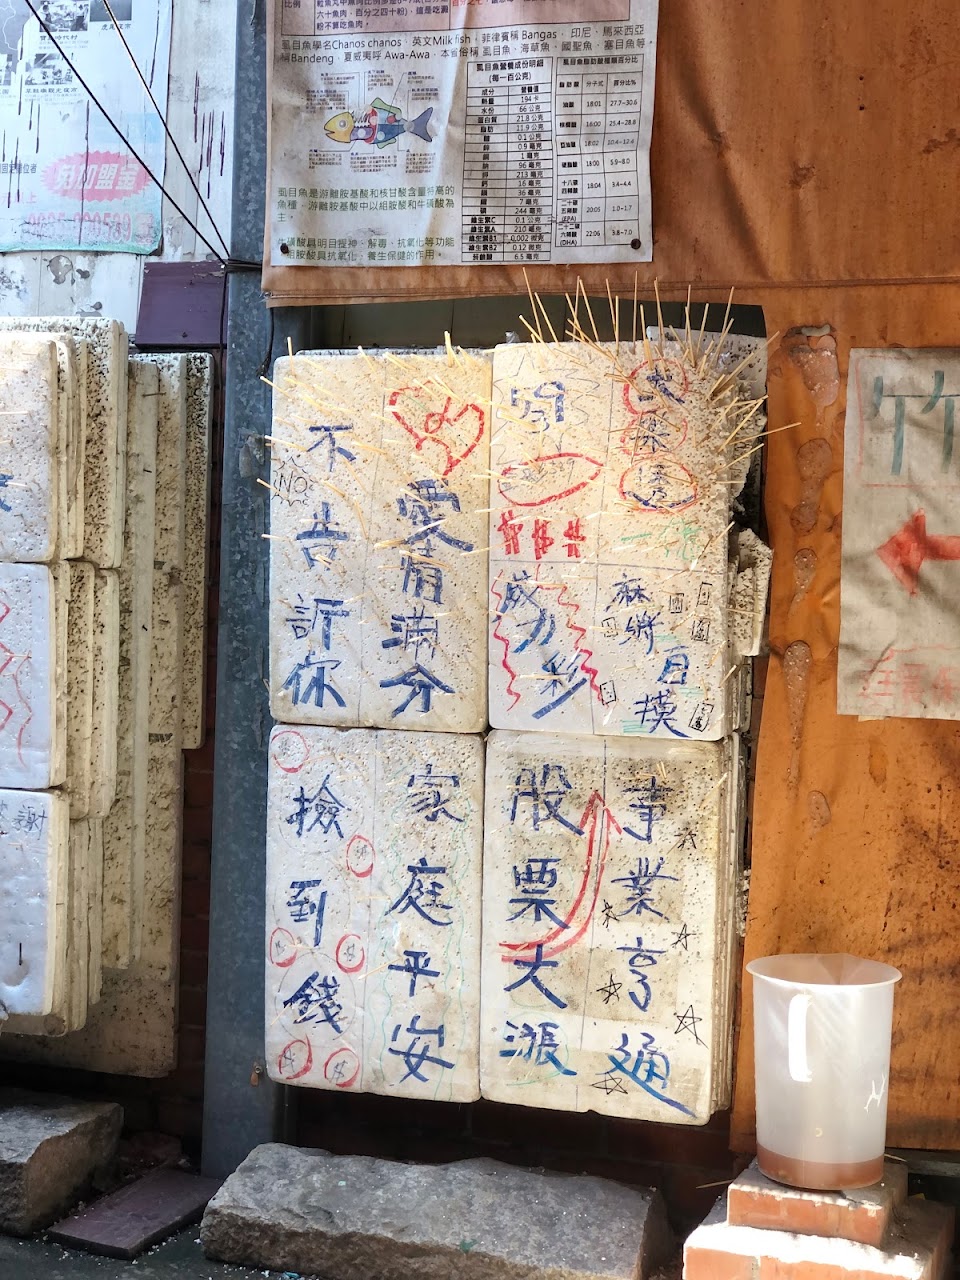 六十魚肉，百分之四十粉)，還是吃漏
粉不算吃魚肉。
虱目魚學名Chanos chanos，英文Milk fish，菲律賓稱 Bangas、印尼、馬來西亞
稱Bandeng、夏威夷呼 Awa-Awa、本省俗稱 虱目魚、海草魚、國聖魚、塞目魚等。
虱目魚營養成份明細
(每一百公克)
成分 營養值
熱量 194 卡
水份 66 公克
蛋白質 21.8 公克
脂肪 11.9 公克
醣 0.1 公克
鋅 0.9 毫克
銅 1 毫克
鈉 96 毫克
鉀 213 毫克
鈣 16 毫克
鎂 36 毫克
鐵 7 毫克
磷 244 毫克
維生素C 0.1 公克
維生素A 210 毫克
維生素B1 0.002 微克
維生素B2 0.12 微克
菸鹼酸 6.5 毫克
虱目魚脂肪酸種類百分比
脂肪酸 分子式 百分比%
油酸 18:01 27.7-30.6
棕櫚酸 16:00 25.4-28.8
亞油酸 18:02 10.4-12.4
硬脂酸 18:00 5.9-8.0
十八碳四烯酸 18:04 3.4-4.4
二十碳五烯酸(EPA) 20:05 1.0-1.7
二十二碳六烯酸(DHA) 22:06 3.8-7.0
虱目魚是游離胺基酸和核甘酸含量特高的
魚種，游離胺基酸中以組胺酸和牛磺酸為
主。
牛磺酸具明目提神、解毒、抗氧化等功能
組胺酸具抗氧化、養生保健的作用。
免加盟金
大樂透
威力彩
麻將
自摸
愛情滿分
不告訴你
NO
事業亨通
股票大漲
家庭平安
撿到錢
謝
竹